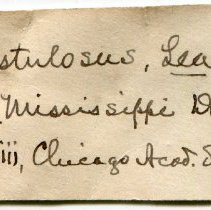 stulosus, Lea
Mississippi D
iii, Chicago Acad. S